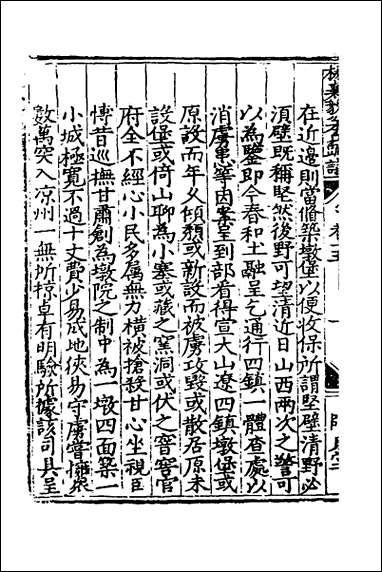 在近邊則當脩築墩堡以便收保所謂堅壁清野必
須壁既稱堅然後野可望清近日山西兩次之警可
以為鑒即今春和土融呈乞通行四鎮一體查處以
消虜患等因案呈到部看得宣大山遼四鎮墩堡或
原設而年久傾頹或新設而被虜攻毀或散居原未
設堡或倚山聊為小塞或藏之窯洞或伏之窨窖官
府全不經心小民多屬無力橫被搶殺甘心坐視臣
博昔巡撫甘肅創為墩院之制中為一墩四面築一
小城極寬不過十丈費少易成地狹易守虜嘗擁眾
數萬突入凉州一無所掠卓有明驗所據該司具呈